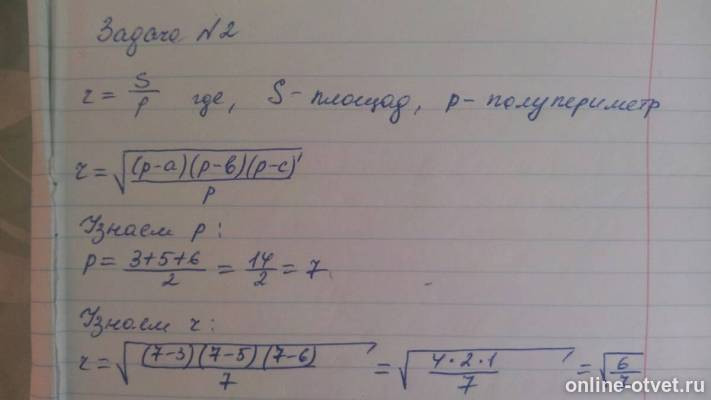 Задача №2
r = S/p где, S - площад, p - полупериметр
r = √((p-a)(p-b)(p-c)/p)
Узнаем p:
p = (3+5+6)/2 = 14/2 = 7
Узнаем r:
r = √((7-3)(7-5)(7-6)/7) = √(4·2·1/7) = √(6/7)
online-otvet.ru